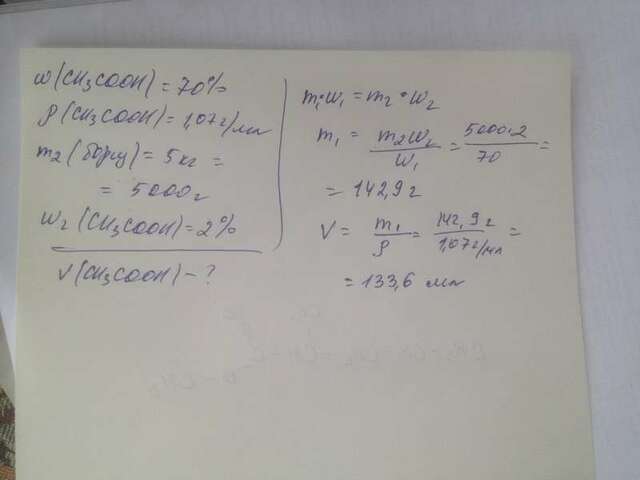 w(CH₃COOH) = 70%
ρ(CH₃COOH) = 1,07г/мл
m₂(борщу) = 5 кг =
= 5000г
w₂(CH₃COOH) = 2%
V(CH₃COOH) - ?
m₁·w₁ = m₂·w₂
m₁ = m₂w₂/w₁ = 5000·2/70 =
= 142,9 г
V = m₁/ρ = 142,9 г/1,07 г/мл =
= 133,6 мл